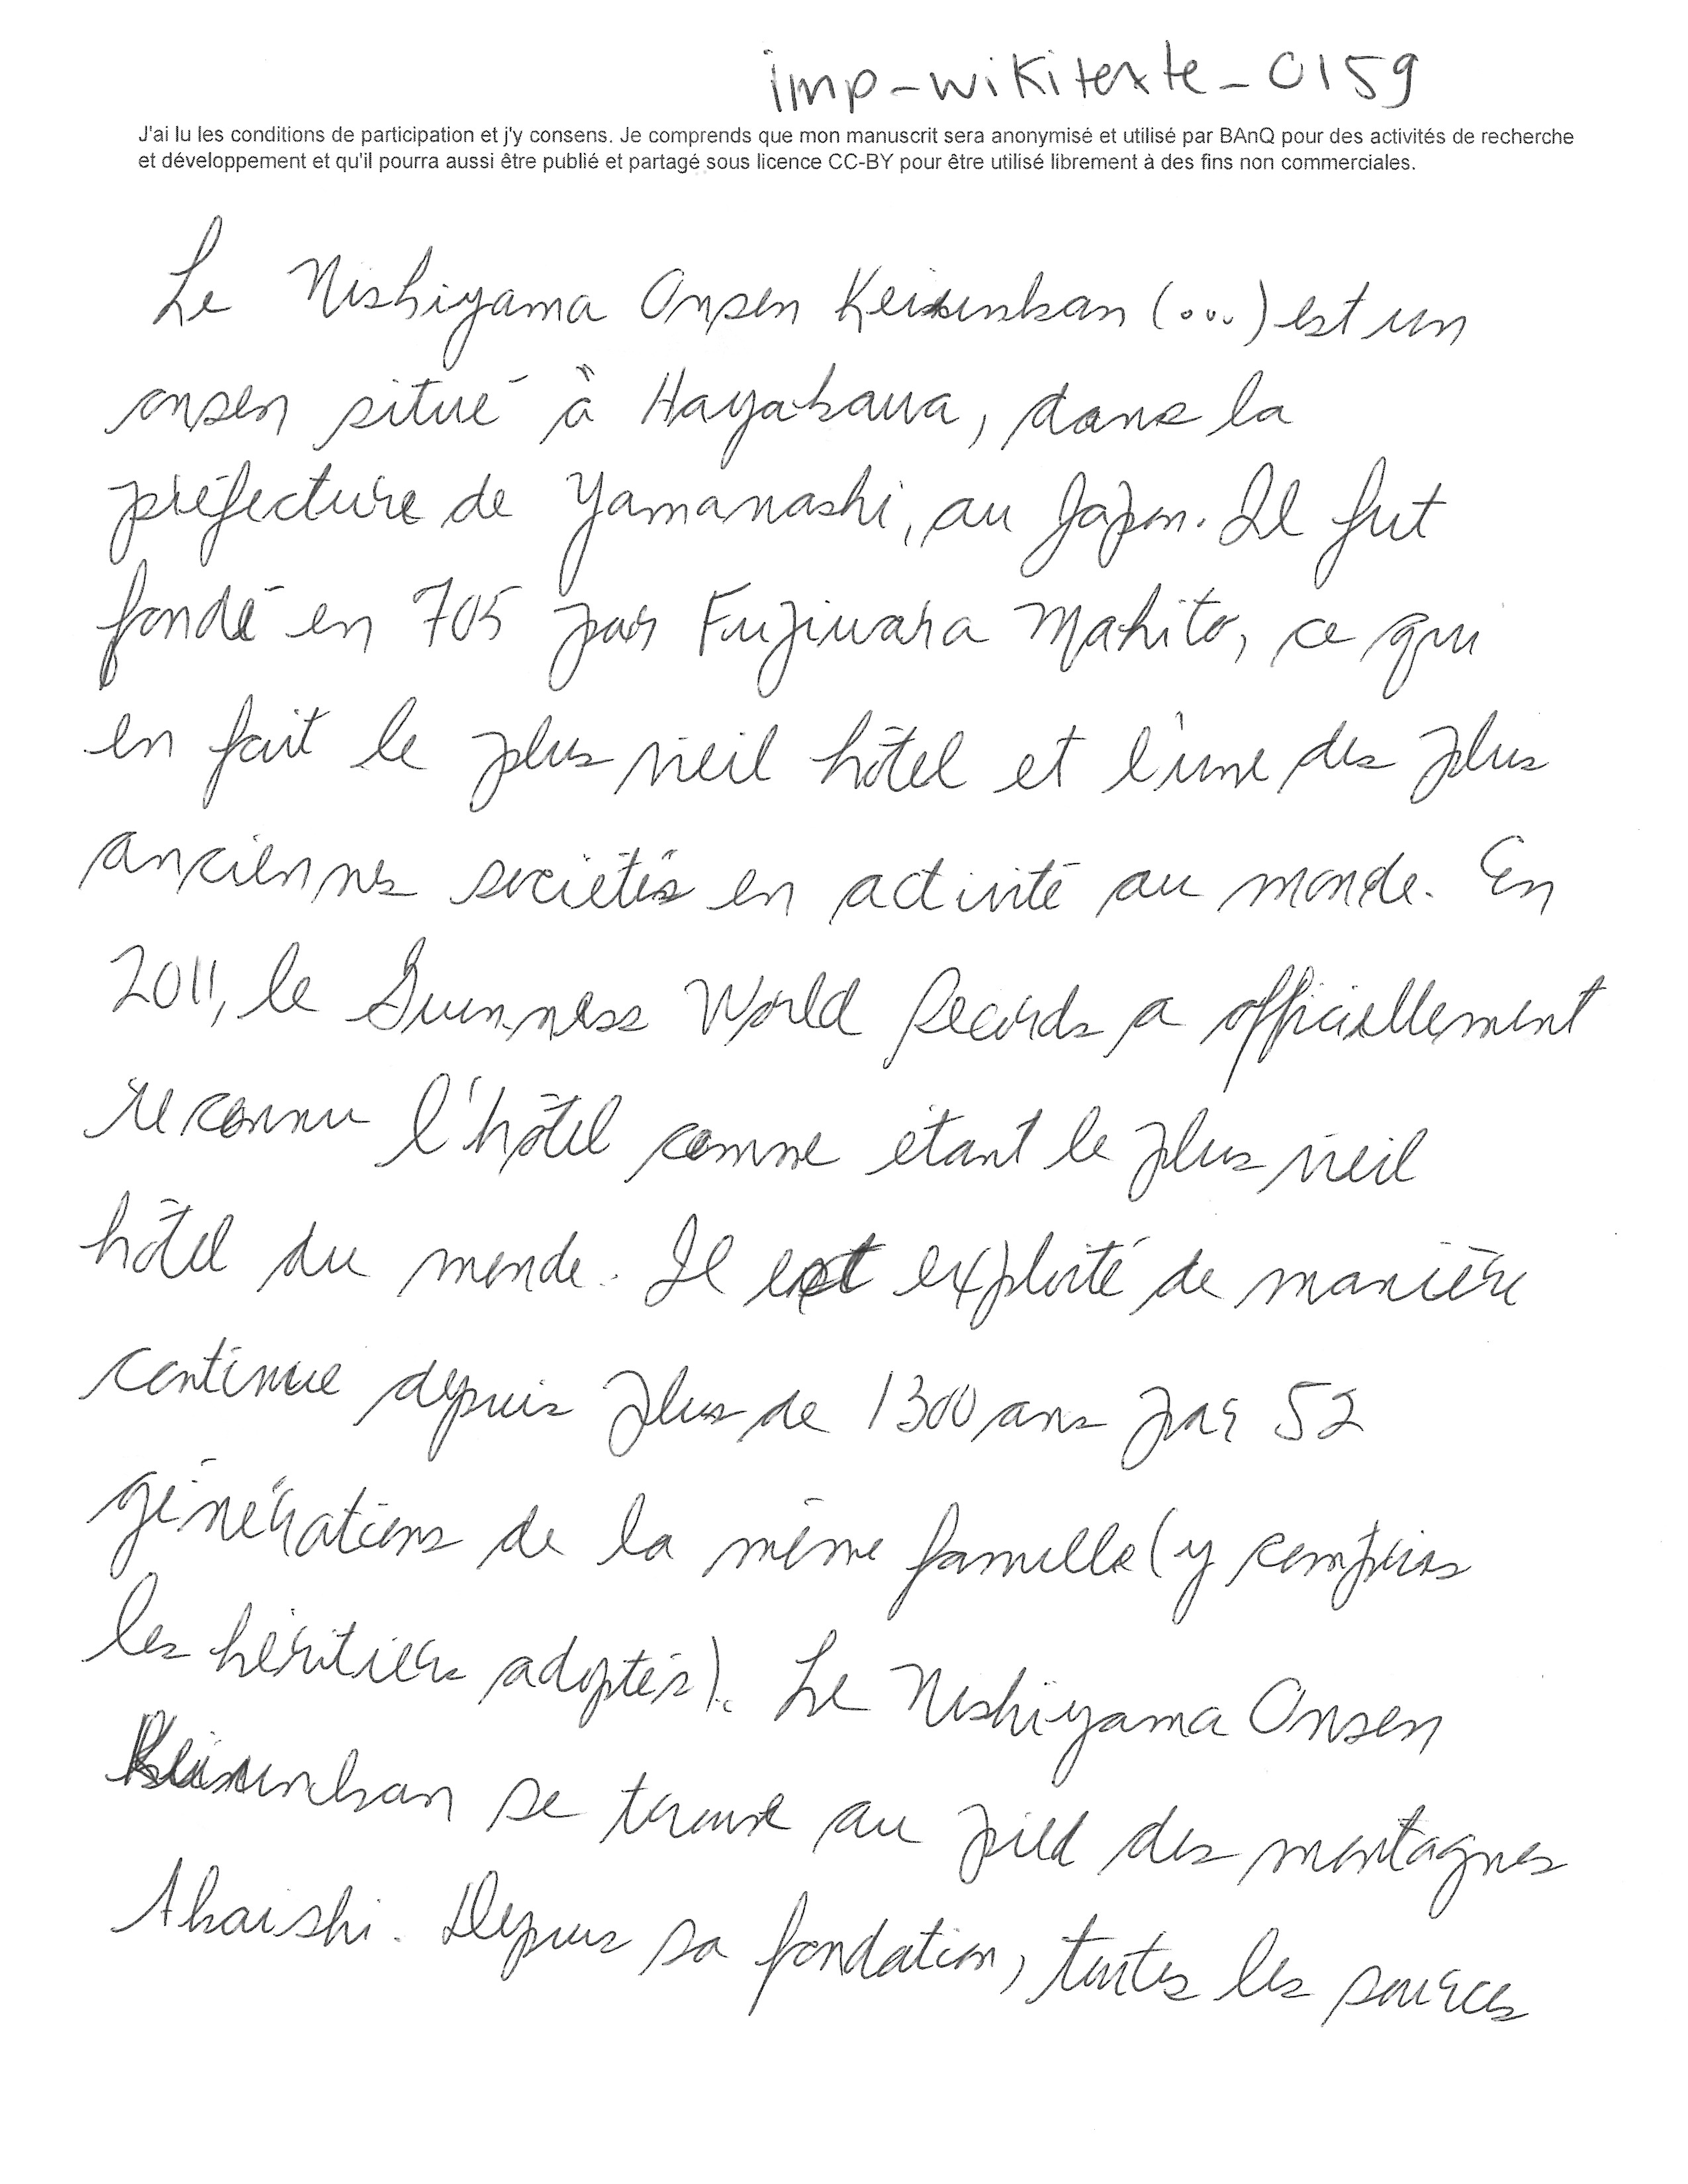 imp-wikitexte-0159
J'ai lu les conditions de participation et j'y consens. Je comprends que mon manuscrit sera anonymisé et utilisé par BAnQ pour des activités de recherche
et développement et qu'il pourra aussi être publié et partagé sous licence CC-BY pour être utilisé librement à des fins non commerciales.
Le Nishiyama Onsen Keiunkan (...) est un
onsen situé à Hayakawa, dans la
préfecture de Yamanashi, au Japon. Il fut
fondé en 705 par Fujiwara Mahito, ce qui
en fait le plus vieil hôtel et l'une des plus
anciennes sociétés en activité au monde. En
2011, le Guinness World Records a officiellement
reconnu l'hôtel comme étant le plus vieil
hôtel du monde. Il est exploité de manière
continue depuis plus de 1300 ans par 52
générations de la même famille (y compris
les héritiers adoptés). Le Nishiyama Onsen
Keiunkan se trouve au pied des montagnes
Akaishi. Depuis sa fondation, toutes les sources